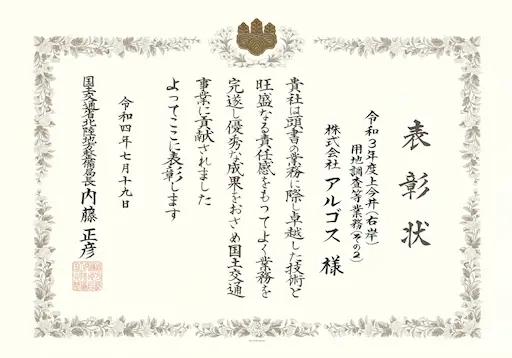 表彰状
令和3年度上今井(右岸)
用地調査等業務(その2)
株式会社 アルゴス 様
貴社は頭書の業務に際し卓越した技術と
旺盛なる責任感をもってよく業務を
完遂し優秀な成果をおさめ国土交通
事業に貢献されました
よってここに表彰します
令和四年七月十九日
国土交通省北陸地方整備局長 内藤正彦